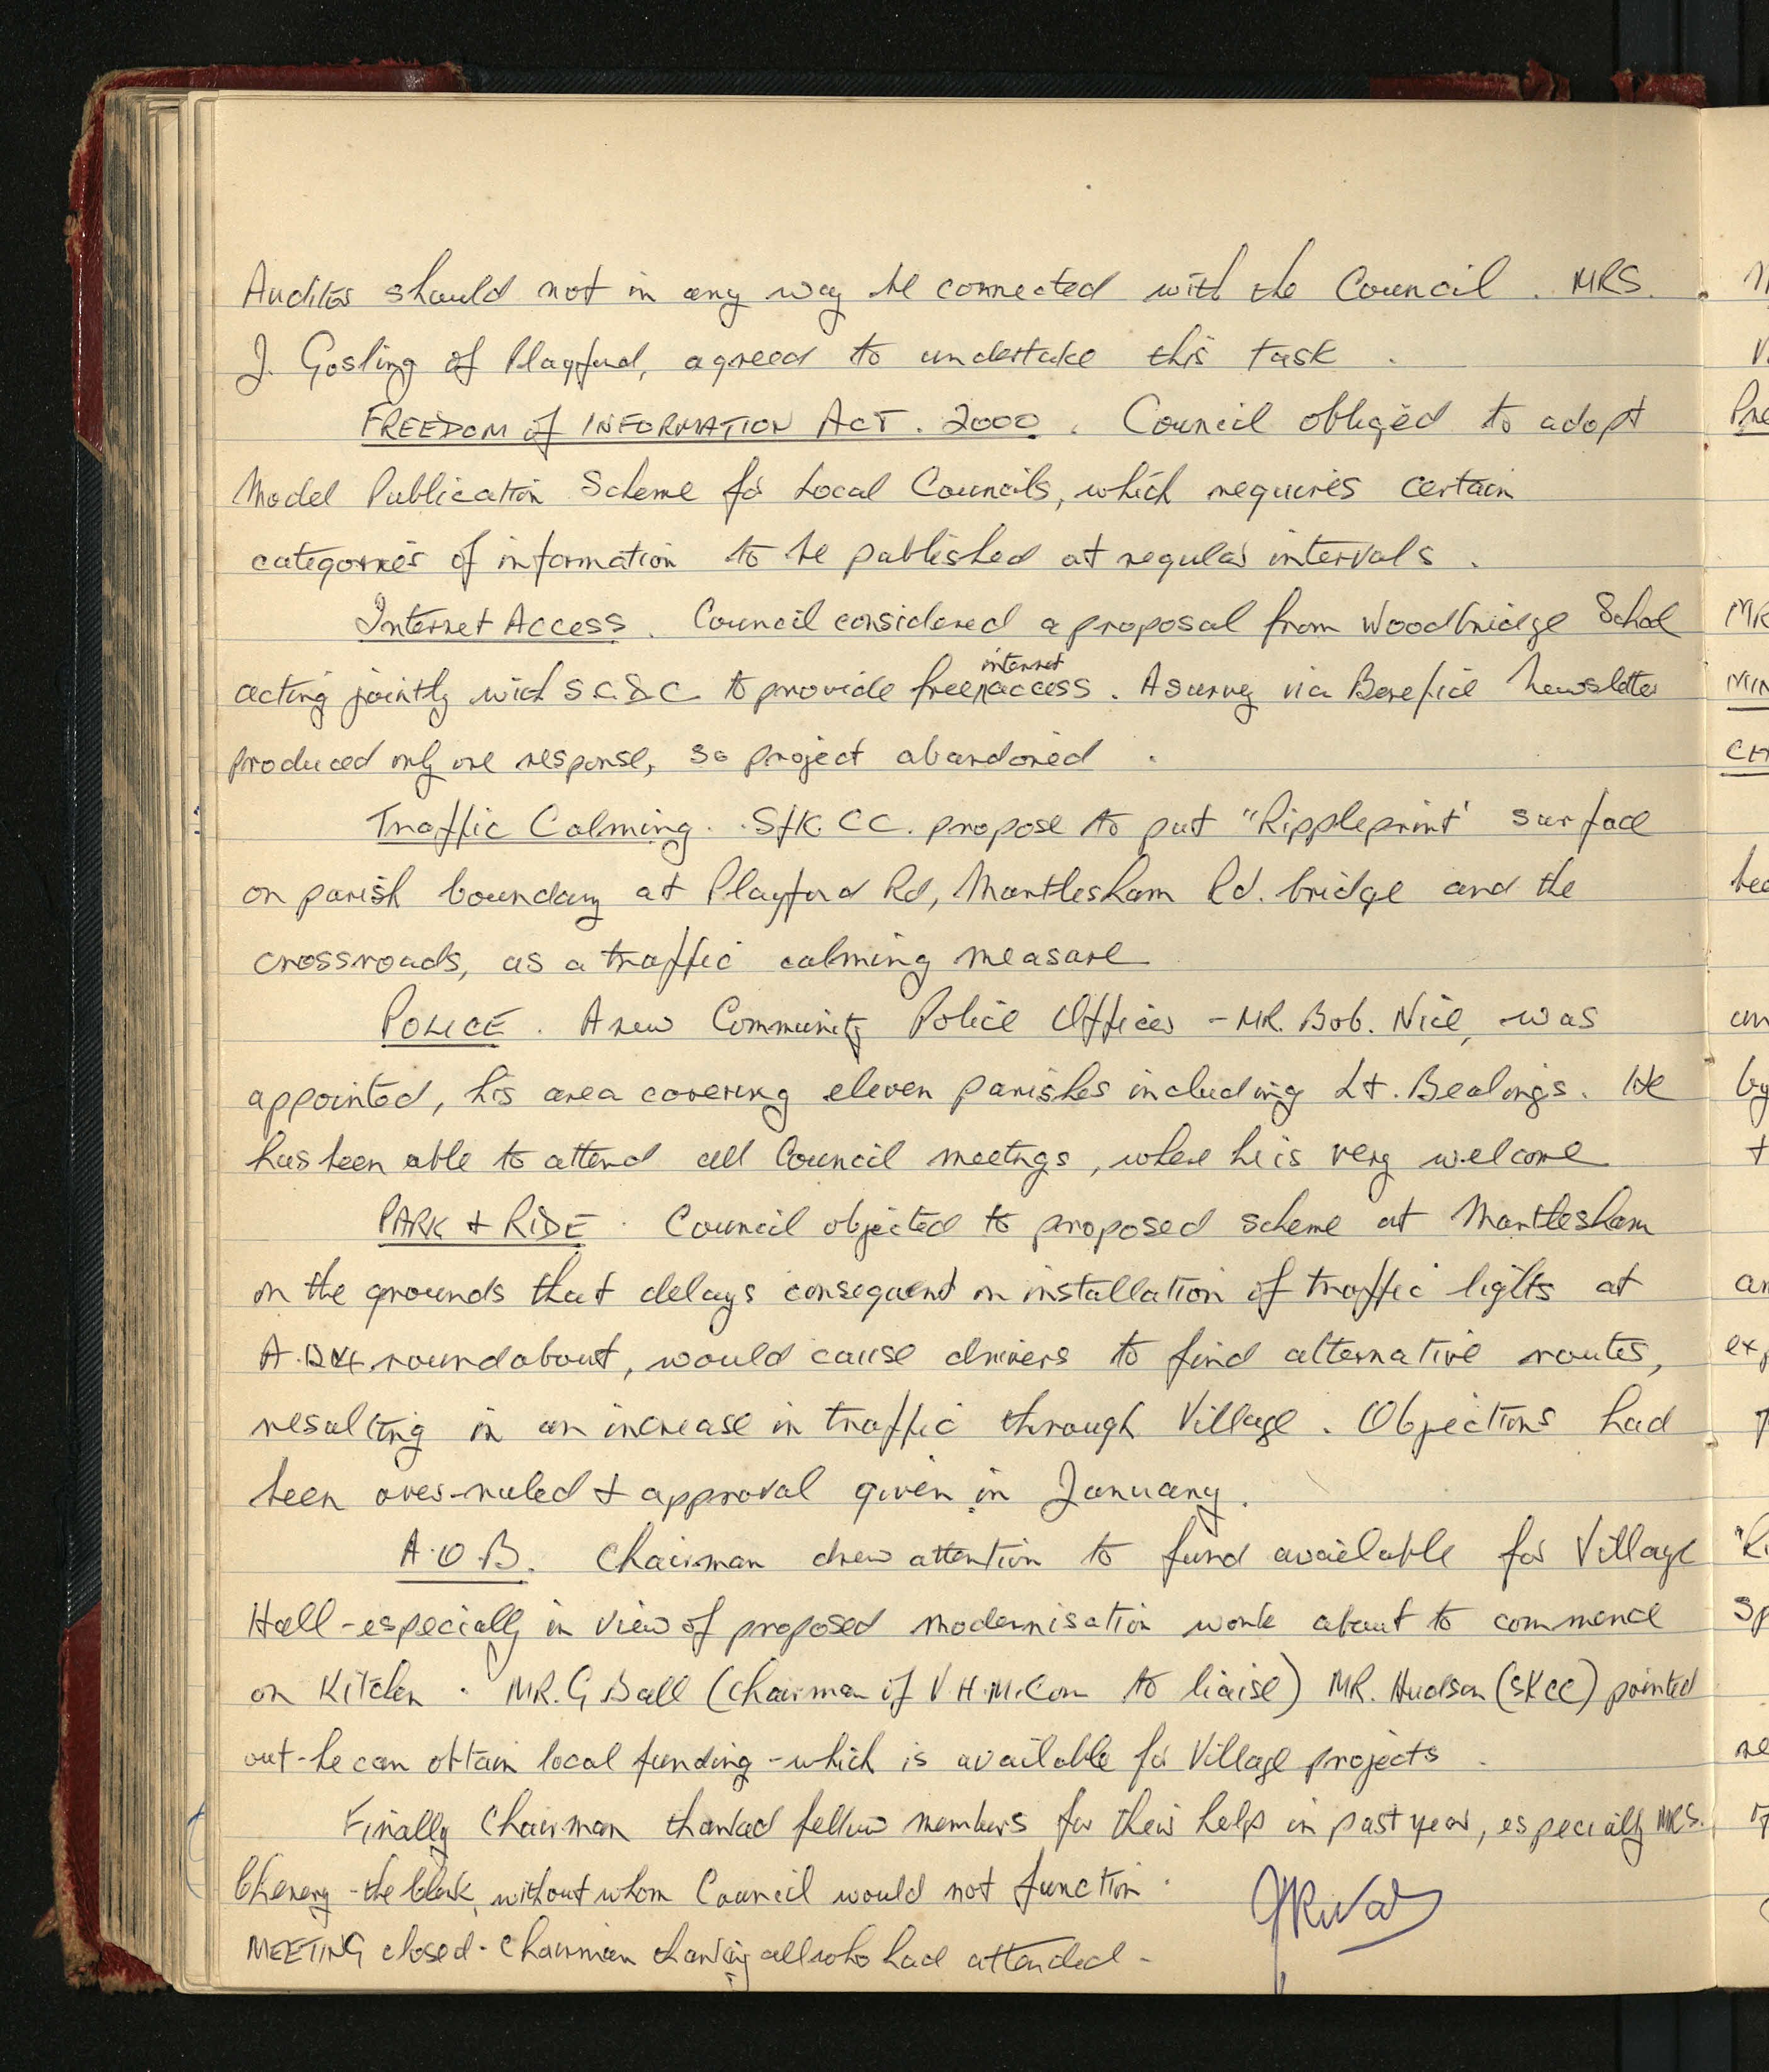 Auditor should not in any way be connected with the Council . MRS.
J. Gosling of Playford, agreed to undertake this task .
FREEDOM of INFORMATION ACT . 2000 . Council obliged to adopt
Model Publication Scheme for Local Councils, which requires certain
categories of information to be published at regular intervals .
Internet Access . Council considered a proposal from Woodbridge School
internet
acting jointly with S C D C to provide free access . A survey via Benefice Newsletter
produced only one response, so project abandoned .
Traffic Calming . SfK. CC. propose to put "Rippleprint" surface
on parish boundary at Playford Rd, Martlesham Rd. bridge and the
crossroads, as a traffic calming measure
POLICE . A new Community Police Officer - MR. Bob. Nice, was
appointed, his area covering eleven parishes including Lt. Bealings. He
has been able to attend all Council meetngs, where he is very welcome
PARK & RIDE . Council objected to proposed scheme at Martlesham
on the grounds that delays consequent on installation of traffic lights at
A.12 roundabout, would cause drivers to find alternative routes,
resulting in an increase in traffic through Village . Objections had
been over-ruled & approval given in January .
A.O.B. Chairman drew attention to fund available for Village
Hall - especially in view of proposed modernisation work about to commence
on Kitchen . MR. G Ball (Chairman of V.H.M.Com to liaise) MR. Hudson (SKCC) pointed
out - he can obtain local funding - which is available for Village projects .
Finally Chairman thanked fellow members for their help in past year, especially MRS.
Chenery - the Clerk, without whom Council would not function .
MEETING closed - Chairman thanking all who had attended -